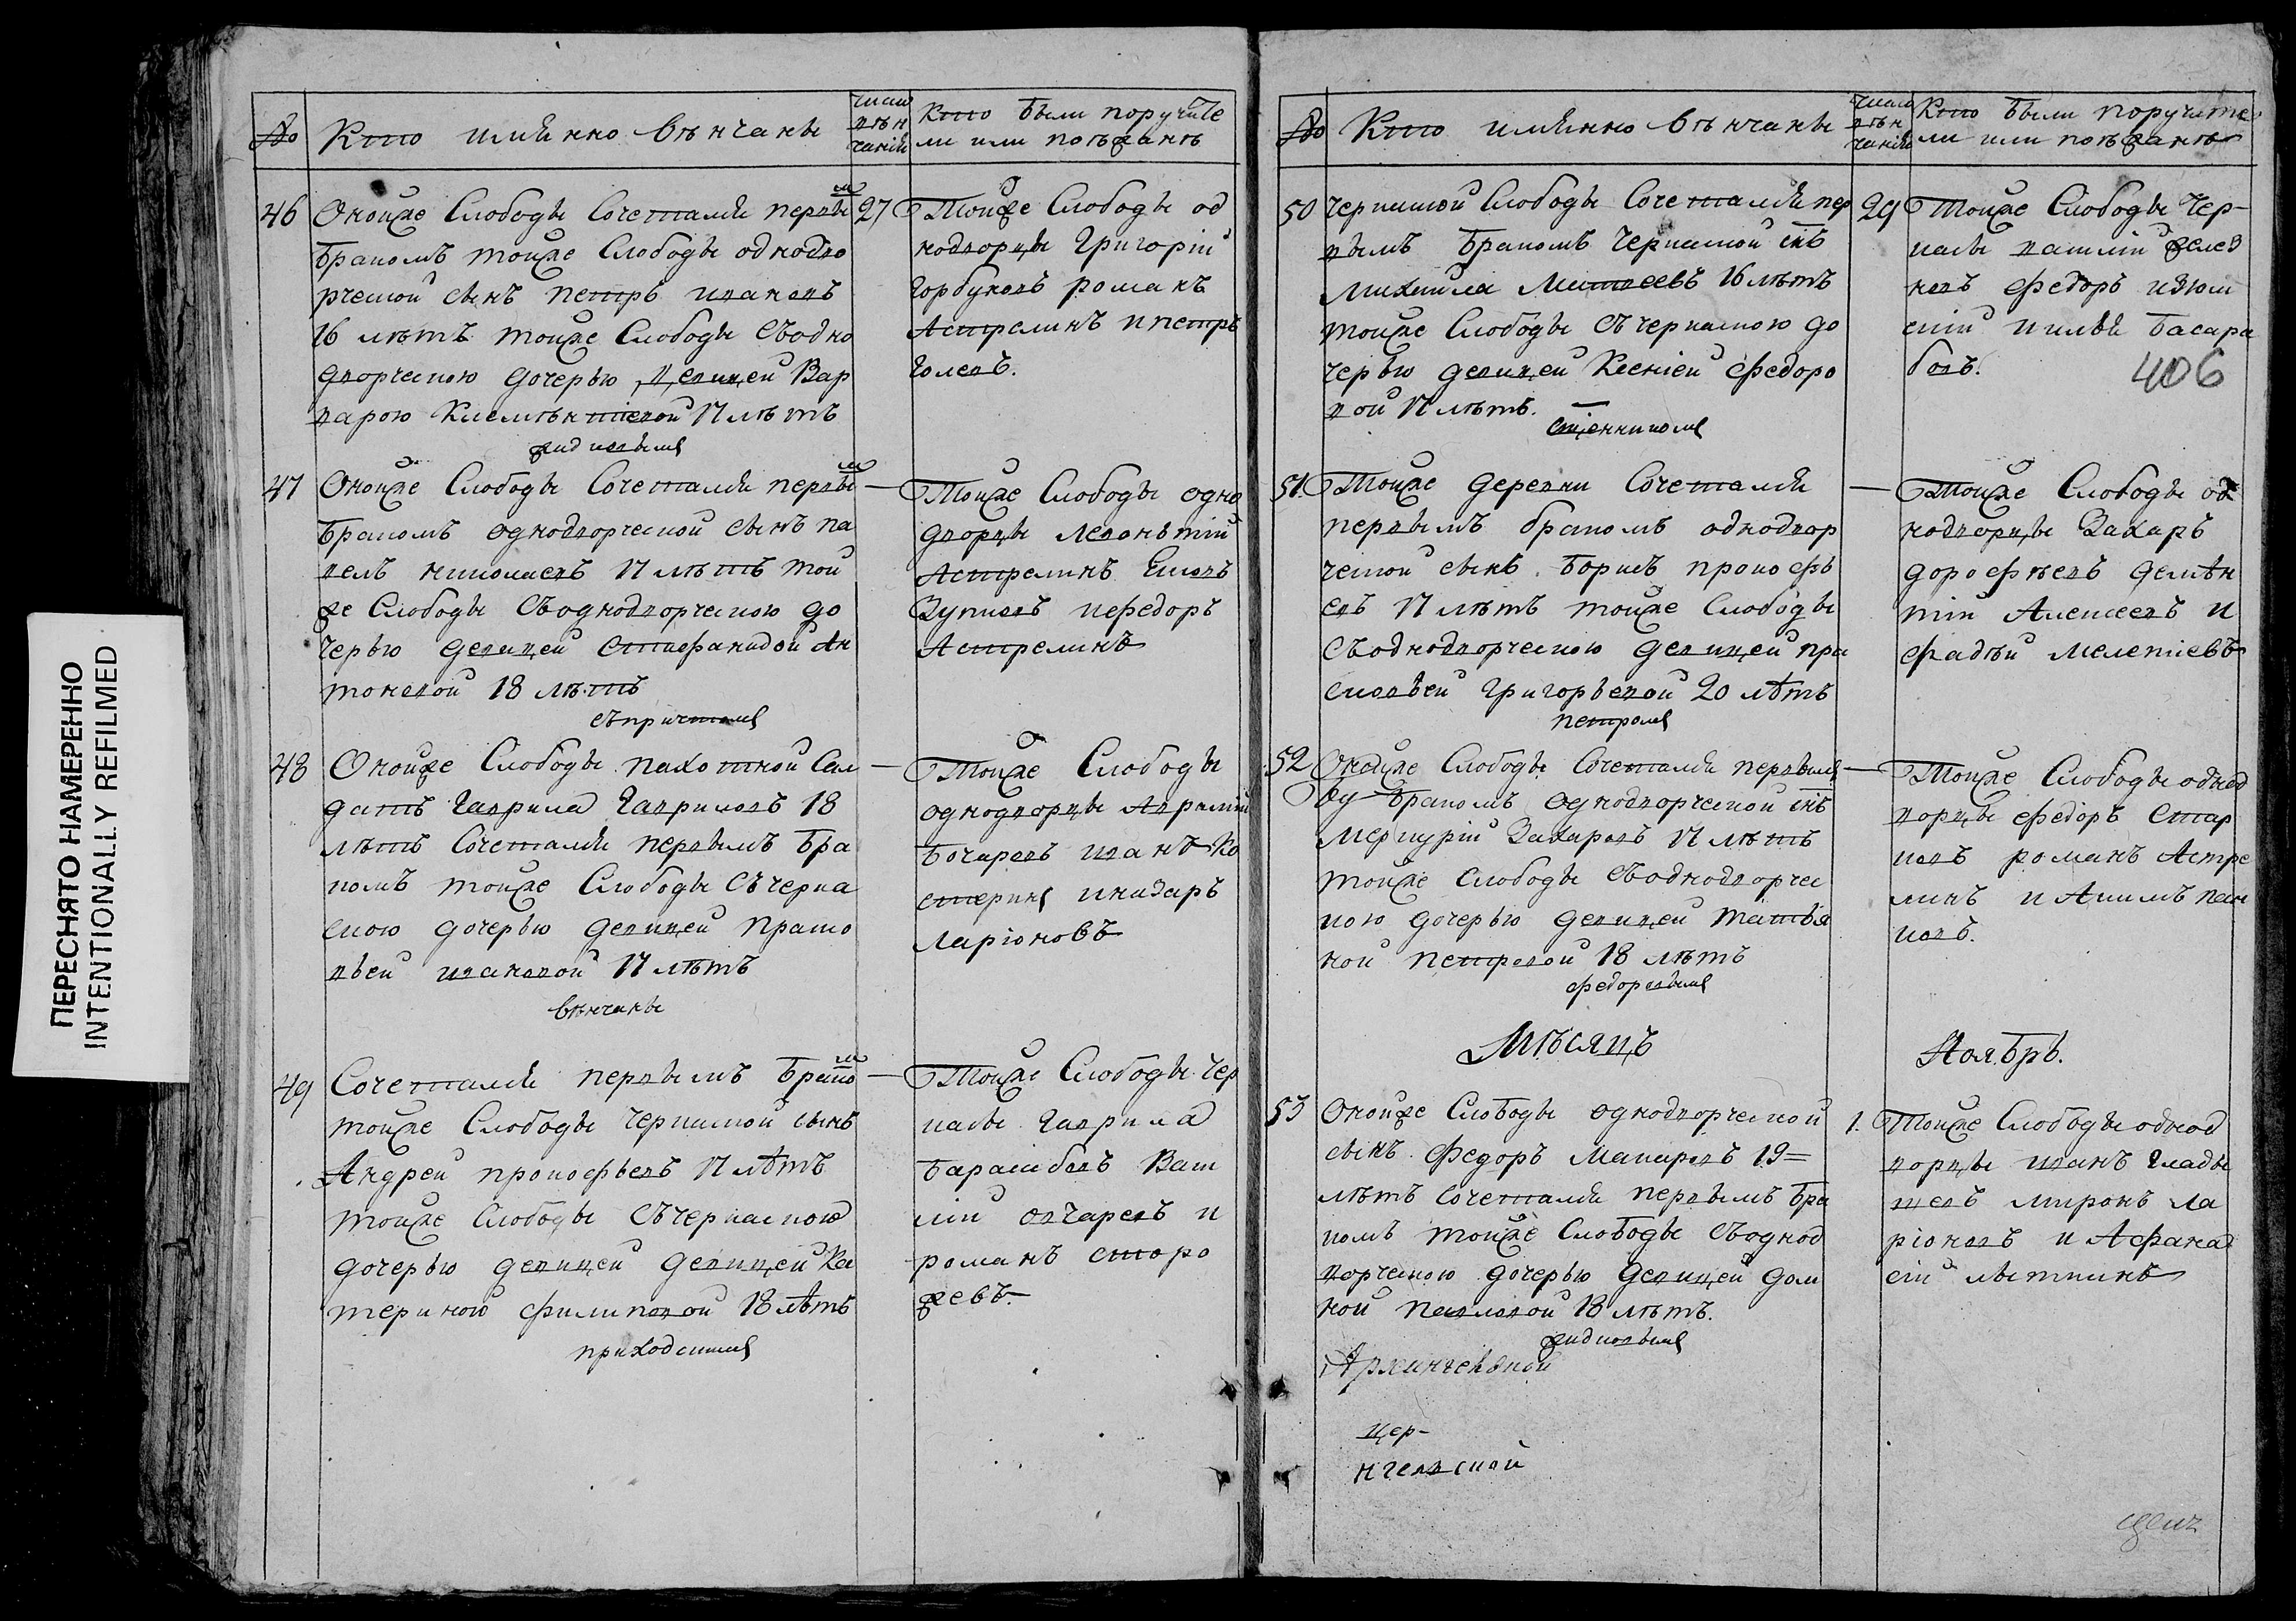 ПЕРЕСНЯТО НАМЕРЕННО
INTENTIONALLY REFILMED
№ Кто имянно венчаны
число вѣн чанія
Кто были поручите
ли или поѣзжанѣ
46 Оной же Слободы Сочетался первы м
бракомъ той же Слободы однодво
рческой сынъ петръ ивановъ
16 лѣтъ той же Слободы Съодно
дворческою дочерью девицей Вар
варою Клемѣнтіевой 17 лѣтъ
жидковымъ
27 Той же Слободы од
нодворцы Григорій
Горбуновъ романъ
Астрелинъ и петръ
Голевъ.
47 Оной же Слободы Сочетался первы м
бракомъ однодворческой сынъ па
велъ николаевъ 17 лѣтъ той
же Слободы Съоднодворческою до
черью девицей Стефанидой Ан
тоновой 18 лѣтъ
съпричтомъ
— Той же Слободы одно
дворцы Леонътій
Астрелинъ
Зупковъ ифедоръ
Астрелинъ
48 Оной же Слободы пахотной Сал
датъ Гаврила Гавриловъ 18
лѣтъ Сочетался первымъ бра
комъ той же Слободы Съчерка
скою дочерью девицей праско
вьей ивановой 17 лѣтъ
венчаны
— Той же Слободы
однодворцы
Бочаровъ иванъ Ко
стерин иназаръ
Ларіоновъ
49 Сочетался первымъ брако м
той же Слободы черкаской сынъ
Андрей прокофьевъ 17 лѣтъ
той же Слободы Съчеркаскою
дочерью девицей девицей Ка
териною филиповой 18 лѣтъ
приходскимъ
— Той же Слободы чер
касы Гаврила
Васи
лій овчаревъ и
романъ сторо
жевъ.
№ Кто имянно венчаны
число вѣн чанія
Кто были поручите
ли или поѣзжанѣ
50 черкаской Слободы Сочетался пер
вымъ бракомъ черкаской снъ
Михайла Матвеевъ 16 лѣтъ
той же Слободы Съчеркаскою до
черью девицей Ксеніей федоро
вой 17 лѣтъ.
сщенникомъ
29 Той же Слободы Чер-
касы василій желез
невъ федоръ изюм
скій и илья басара
бовъ.
406
51. Той же деревни Сочетался
первымъ бракомъ однодвор
ческой сынъ борисъ прокофь
евъ 17 лѣтъ той же Слободы
Съоднодворческою девицей пра
сковьей григорьевой 20 лѣтъ
петромъ
— Той же Слободы од
нодворцы Захаръ
дорофѣевъ демѣн
тій Алексеевъ и
фадѣй мелетіевъ
52 Оной же Слободы Сочетался первымъ
бракомъ однодворческой снъ
меркурій Захаровъ 17 лѣтъ
той же слободы Съоднодворчес
кою дочерью девицей татья
ной петровой 18 лѣтъ
федоровымъ
— Той же Слободы однод
ворцы федоръ стар
ковъ романъ Астре
линъ и Акимъ пан
ковъ.
Мѣсяцъ Ноябрь.
53 Оной же Слободы однодворческой
сынъ федоръ макаровъ 19=
лѣтъ сочетался первымъ бра
комъ той же Слободы Съоднод
ворческою дочерью девицей дом
ной павловой 18 лѣтъ.
жидковымъ
1. Той же Слободы однод
ворцы иванъ Глады
шевъ миронъ ла
ріоновъ и Афана
сій
цер-